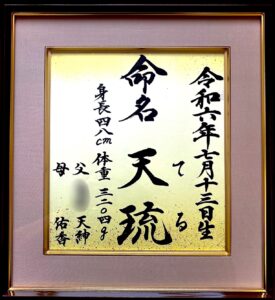 令和六年七月十三日生
てる
命名 天琉
身長四八cm 体重三二〇四g
父 天神
母 佑香